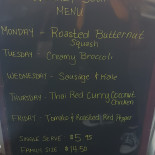 MENU
MONDAY - Roasted Butternut
Squash
TUESDAY - Creamy Broccoli
WEDNESDAY - Sausage & Kale
THURSDAY - Thai Red Curry Coconut
Chicken
FRIDAY - Tomato & Roasted Red Pepper
SINGLE SERVE $5.95
FAMILY SIZE $14.50